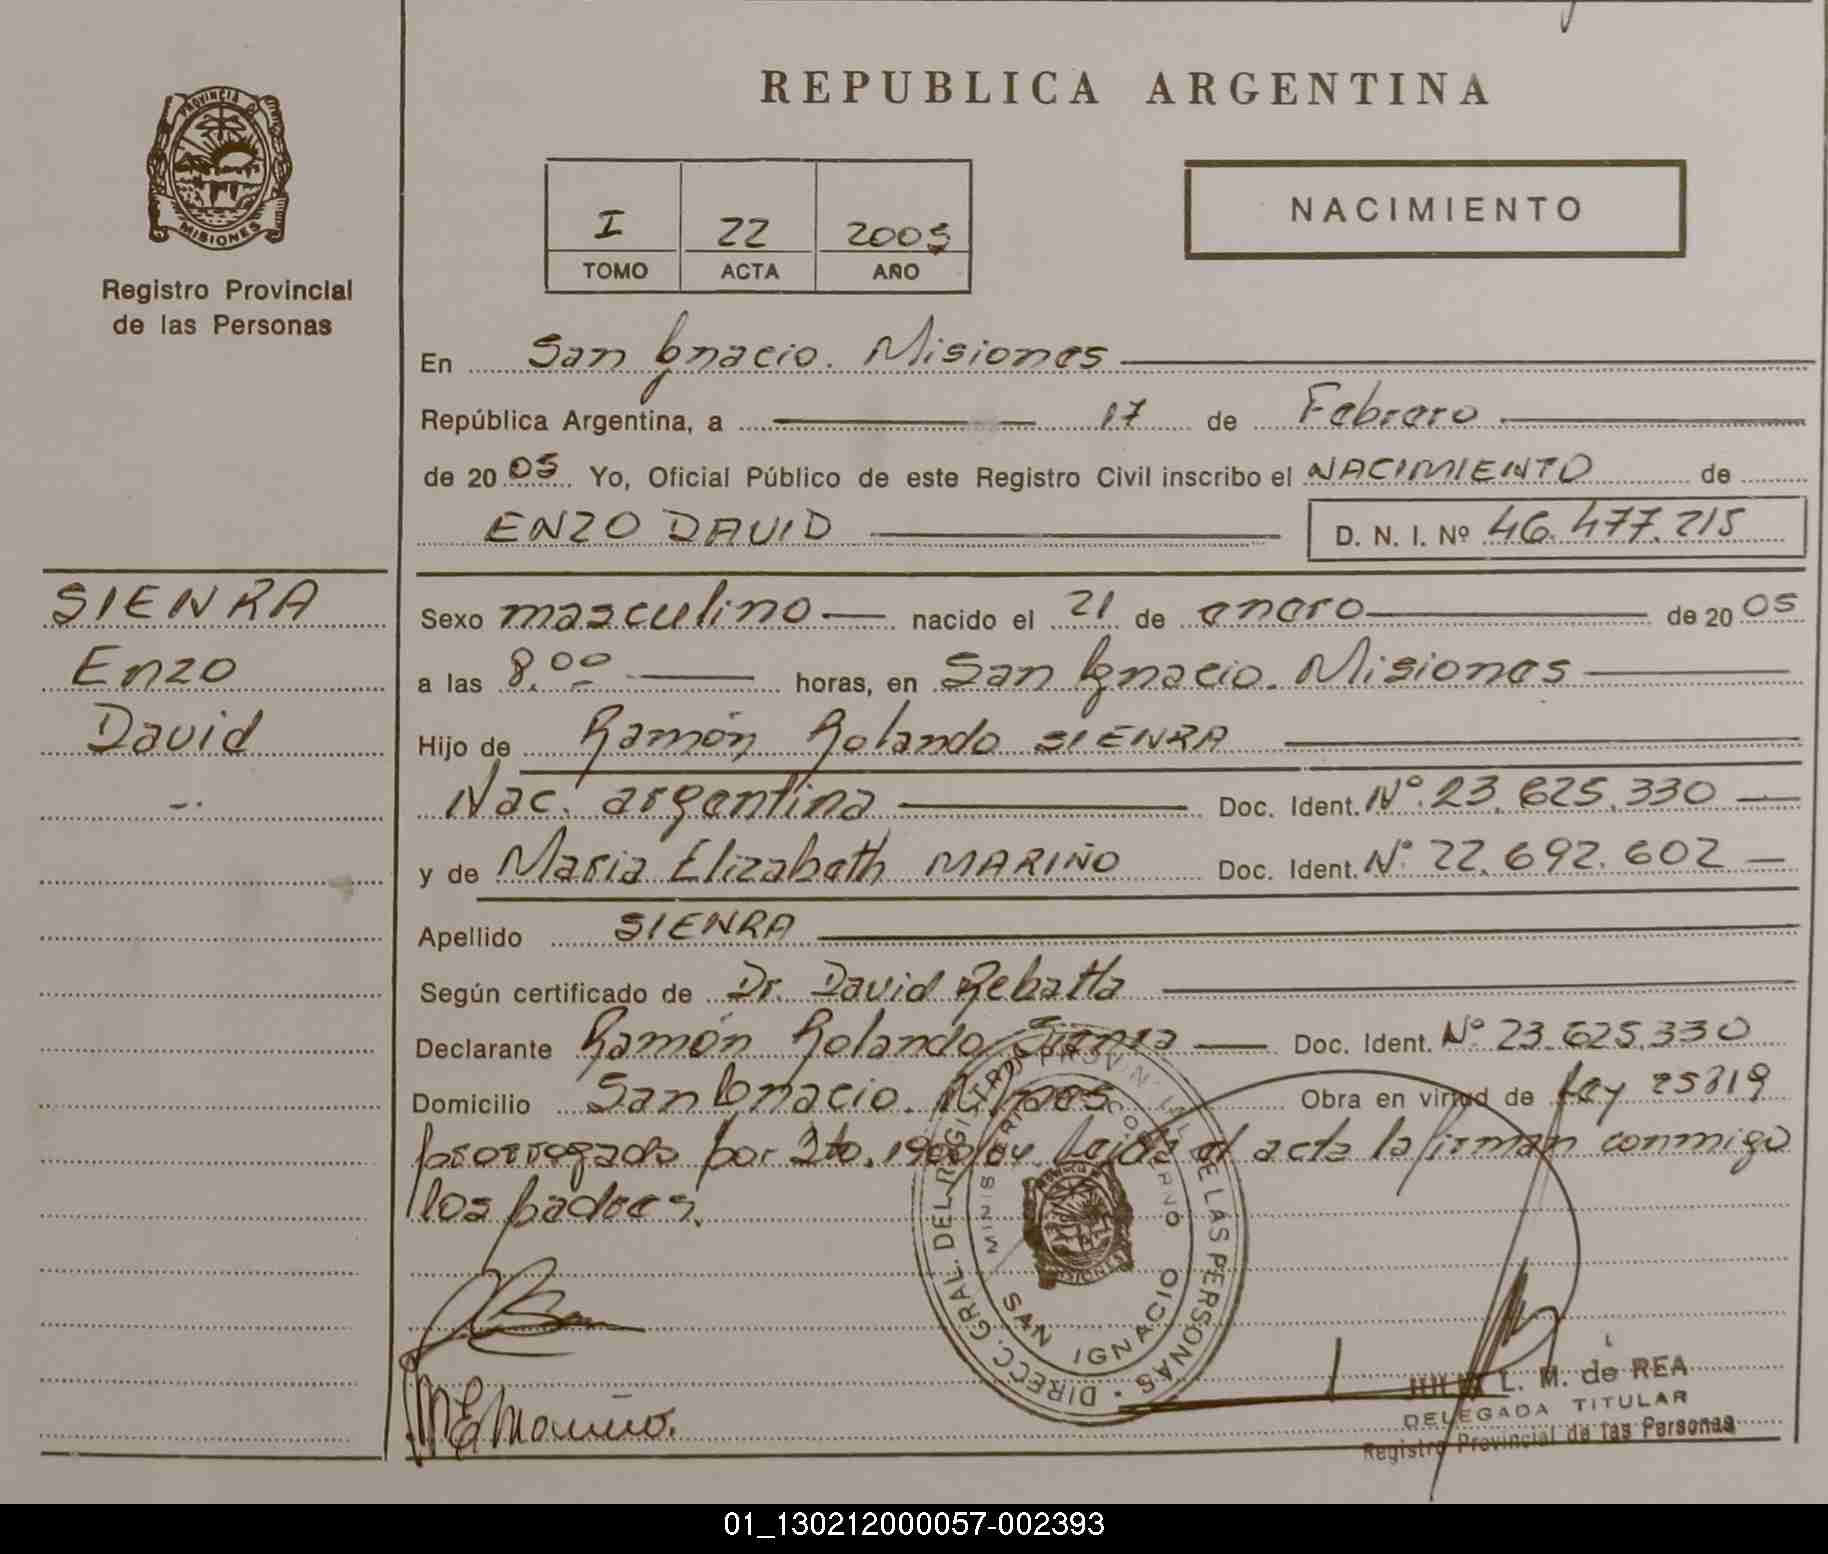 REPUBLICA ARGENTINA
PROVINCIA DE
MISIONES
Registro Provincial
de las Personas
I 22 2005
TOMO ACTA AÑO
NACIMIENTO
En San Ignacio. Misiones
República Argentina, a 17 de Febrero
de 2005 Yo, Oficial Público de este Registro Civil inscribo el NACIMIENTO de
ENZO DAVID D. N. I. Nº 46.477.215
SIENRA
Enzo
David
Sexo masculino nacido el 21 de enero de 2005
a las 8.00 horas, en San Ignacio. Misiones
Hijo de Ramón Rolando SIENRA
Nac. argentina Doc. Ident. Nº 23.625.330
y de Maria Elizabeth MARIÑO Doc. Ident. Nº 22.692.602
Apellido SIENRA
Según certificado de Dr. David
Declarante Ramón Rolando Sienra Doc. Ident. Nº 23.625.330
Domicilio San Ignacio. Obra en virtud de Ley 25819
prorrogado por Dto. Leida el acta la firman conmigo
los padres.
DIRECC. GRAL. DEL REGISTRO PROVINCIAL DE LAS PERSONAS
SAN IGNACIO
MISIONES
MEMariño.
L. M. de REA
DELEGADA TITULAR
Registro Provincial de las Personas
01_130212000057-002393